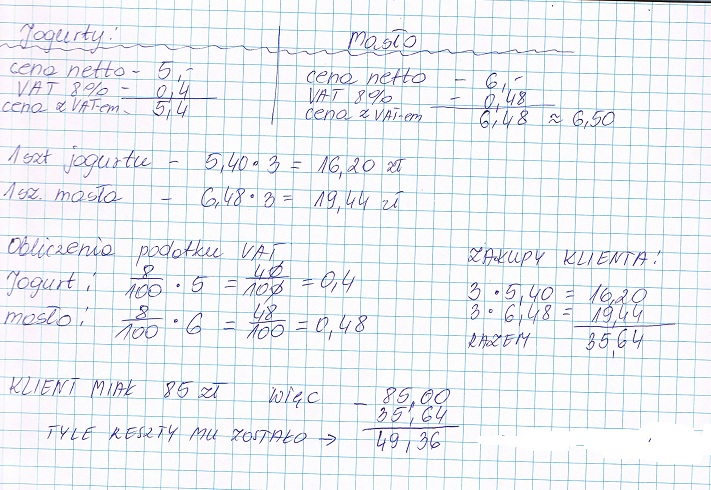 Jogurty: masło
cena netto - 5,- cena netto - 6,-
VAT 8% - 0,4 VAT 8% - 0,48
cena z VAT-em - 5,4 cena z VAT-em 6,48 ≈ 6,50
1 szt jogurtu - 5,40 · 3 = 16,20 zł
1 sz. masła - 6,48 · 3 = 19,44 zł
Obliczenia podatku VAT
Jogurt: 8/100 · 5 = 40/100 = 0,4
masło: 8/100 · 6 = 48/100 = 0,48
ZAKUPY KLIENTA:
3 · 5,40 = 16,20
3 · 6,48 = 19,44
RAZEM 35,64
KLIENT MIAŁ 85 zł więc - 85,00
35,64
TYLE RESZTY MU ZOSTAŁO → 49,36